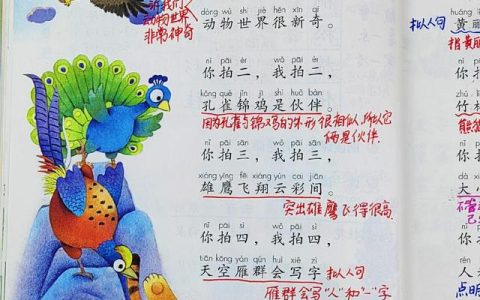 诉我们
动物世界
非常神奇
dòng wù shì jiè hěn xīn qí
动物世界很新奇。
nǐ pāi èr wǒ pāi èr
你拍二，我拍二，
kǒng què jǐn jī shì huǒ bàn
孔雀锦鸡是伙伴。
因为孔雀与锦鸡的外形很相似，所以它
俩是伙伴.
nǐ pāi sān wǒ pāi sān
你拍三，我拍三，
xióng yīng fēi xiáng yún cai jiān
雄鹰飞翔云彩间。
突出雄鹰飞得很高.
nǐ pāi sì wǒ pāi sì
你拍四，我拍四，
tiān kōng yàn qún huì xiě zì
天空雁群会写字
拟人句
雁群会写"人"和"一"字
拟人句
huáng
黄
指黄
你
竹
熊
你
大
你
人
点明